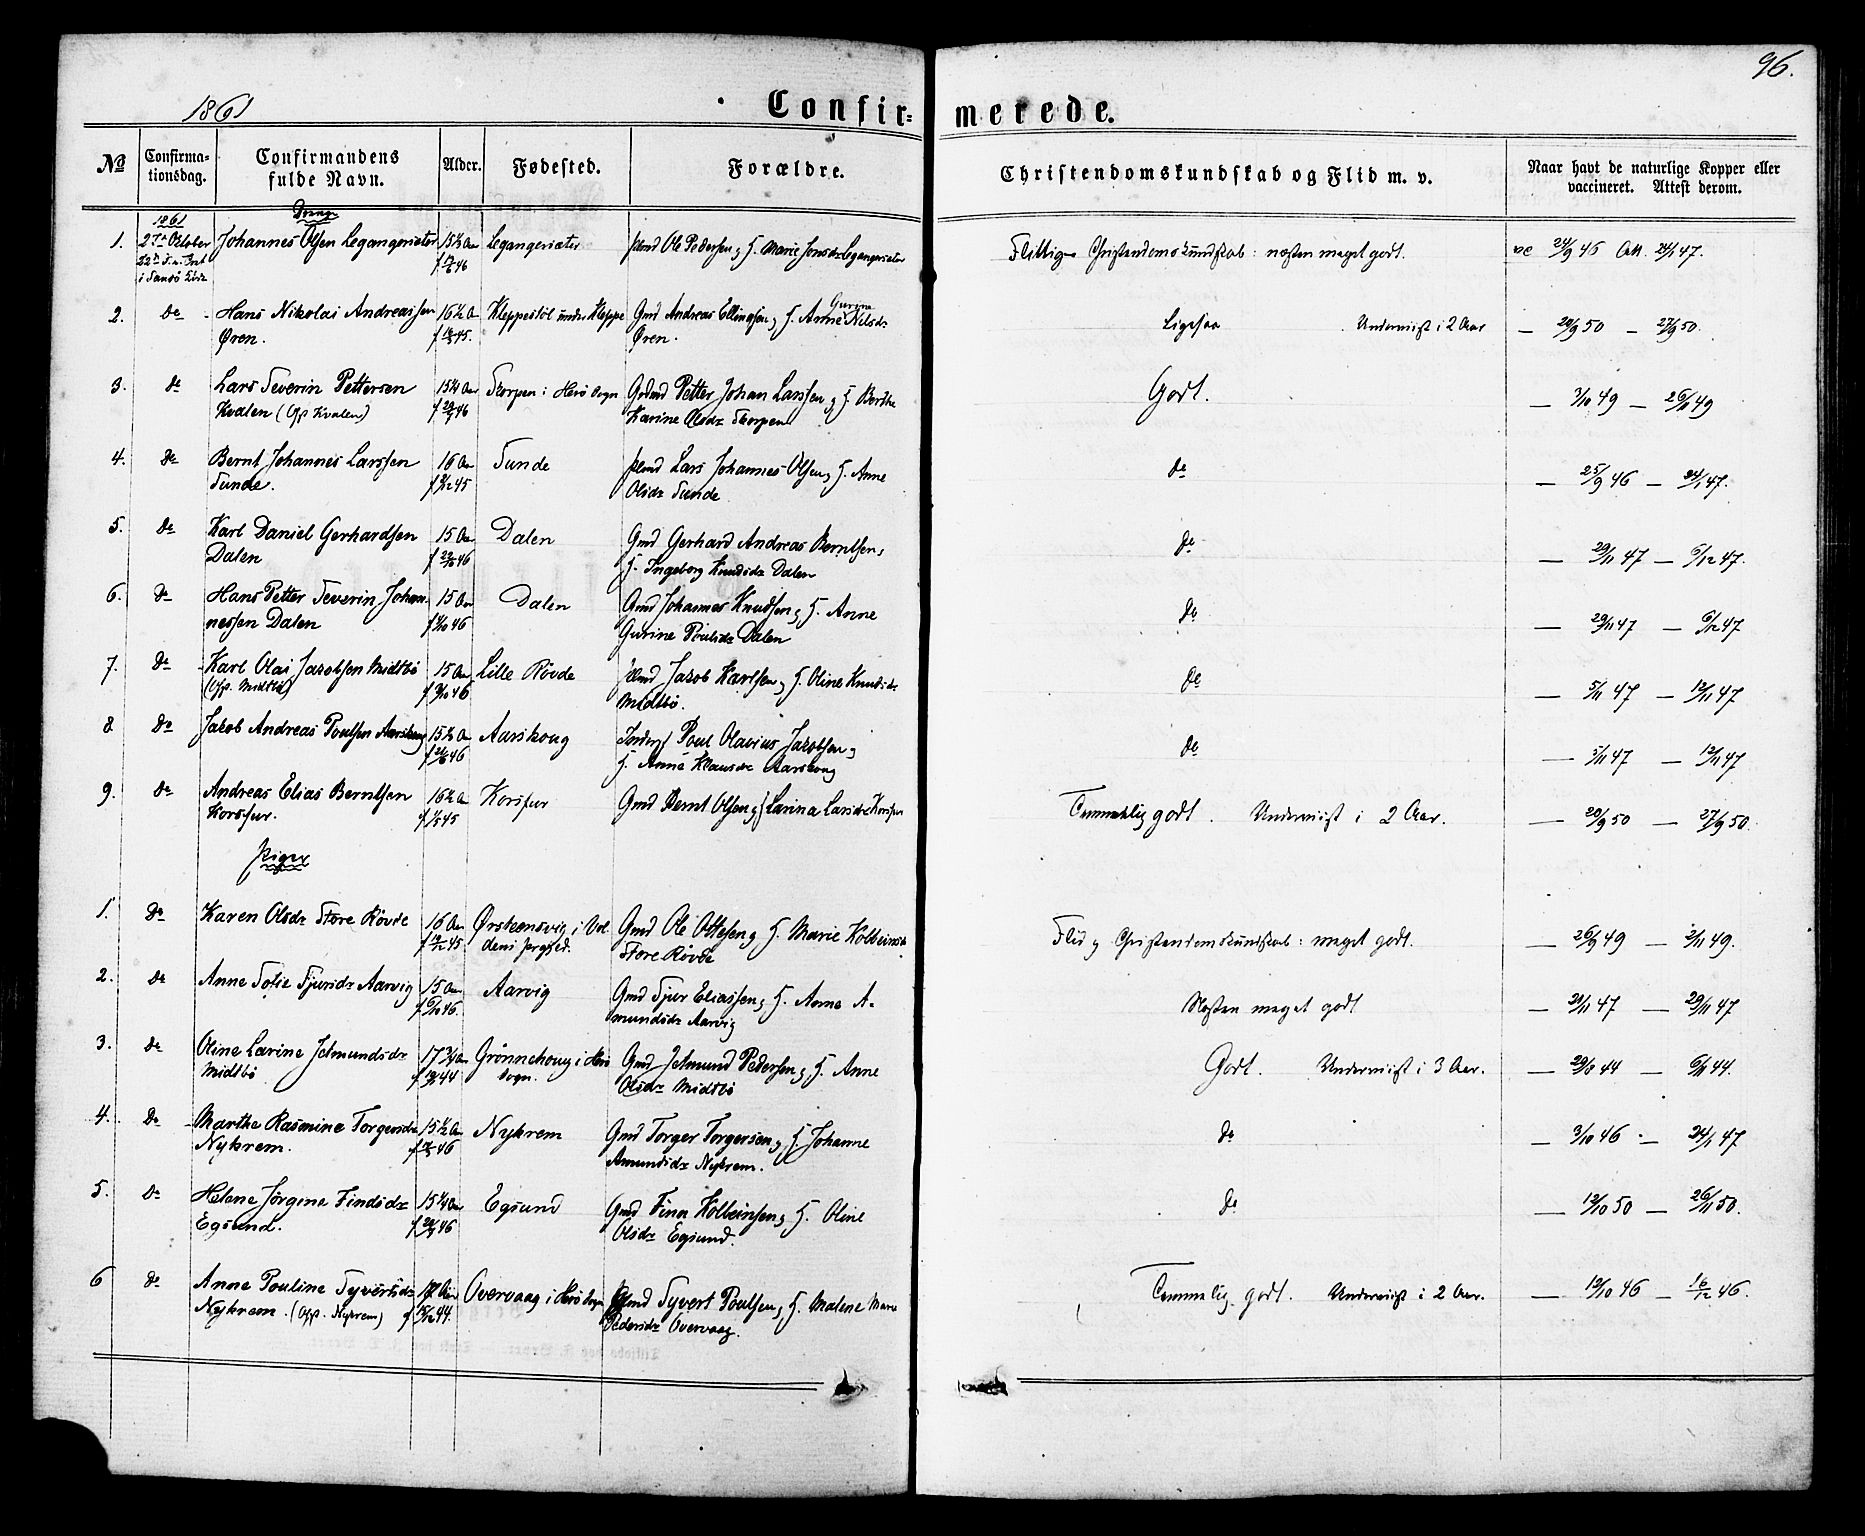 96.
1861
Confir=
merede.
№
Confirma-
tionsdag.
Confirmandens
fulde Navn.
Alder.
Fødested.
Forældre.
Christendomskundskab og Flid m. v.
Naar havt de naturlige Kopper eller
vaccineret. Attest derom.
Drenge
1. 1861 27de October i Sandö Johannes Olsen Legangersæter 15½ Aar 46 Legangersæter Ole Pedersen og H. Marie Jonsdr Legangersæter Christendomskundskab: næsten meget godt. vc 24/9 46 Att. 24/1 47.
2. Do Hans Nikolai Andreassen 16½ A Kleppestöl under Kleppe Gmd Andreas Ellingsen og H. Anne Gurine Nilsdr Ligesaa Underviist i 2 Aar — 20/9 50 — 27/9 50.
Øren. 45. Øren.
3. do Lars Severin Pettersen 15¼ Aar Skorpen i Herö Sogn Gdmd Petter Johan Larssen og H. Berthe Godt. — 3/10 49 — 26/11 49
Kvalen (Opf Kvalen) 46 Karine Olsdr Skorpen
4. do Bernt Johannes Larssen 16 Aar Sunde Lars Johannes Olsen og H. Anne do — 25/9 46 — 24/1 47.
Sunde. 45 Olsdr Sunde
5. do Karl Daniel Gerhardsen 15 Aar Dalen Gmd Gerhard Andreas Berntsen, do — 29/11 47 — 6/12 47.
Dalen 46 H. Ingeborg Knudsdr Dalen
6. do Hans Petter Severin Johan- 15 Aar Dalen Gmd Johannes Knudsen og H. Anne do — 29/11 47 — 6/12 47
nessen Dalen 46 Gurine Poulsdr Dalen
7. do Karl Olai Jacobsen Midtbö 15 Aar Lille Rövde Jakob Karlsen og H. Oline Knudsdr do — 5/11 47 — 12/11 47
(Opf. Midtbö) 46 Midtbö.
8 do Jakob Andreas Poulsen Aarskoug 15½ Aar Aarskoug Poul Olavius Jacobsen og do — 5/11 47 — 12/11 47
46 H. Anne Klausdr Aarskoug
9. do Andreas Elias Berntsen 16½ A Korsfur Gmd Bernt Olsen og H Larina Larsdr Korsfur Temmelig godt. Underviist i 2 Aar. — 20/9 50 — 27/9 50.
Korsfur. 45
Piger
1. do Karen Olsdr Store Rövde 16 Aar Ørskenvig i Vol- Gmd Ole Ottesen og H. Marie Kolbeinsdr Flid og Christendomskundskab: meget godt. — 26/9 49 — 2/11 49.
45 dens Prgjeld. Store Rövde
2. do Anne Sofie Sjursdr Aarvig 15 Aar Aarvig Gmd Sjur Eliassen og H. Anne A- Næsten meget godt — 20/11 47 — 29/11 47
6/10 46. mundsdr Aarvig
3. do Oline Larine Jetmundsdr 17¾ Aar Grönnehoug i Herö Gmd Jetmund Pedersen og H. Anne Godt. Underviist i 3 Aar. — 29/8 44 — 6/11 44.
Midtbö 44 Sogn. Olsdr Midtbö
4. do Marthe Rasmine Torgersdr 15½ Aar Nykrem Gmd Torger Torgersen og H. Johanne do — 3/10 46 — 24/1 47
Nykrem. 46 Amundsdr Nykrem.
5. do Helene Jörgine Findsdr 15¼ Aar Egsund Gmd Finn Kolbeinsen og H. Oline do — 12/10 50 — 26/11 50.
Egsund. 46 Olsdr Egsund.
6 do Anne Pouline Syvertsdr 17 Aar Overvaag i Herö Sogn Syvert Poulsen og H. Malene Marie Temmelig godt. Underviist i 2 Aar. — 12/10 46 — 16/12 46.
Nykrem. (Opf. Nykrem) 44. Pedersdr Overvaag.